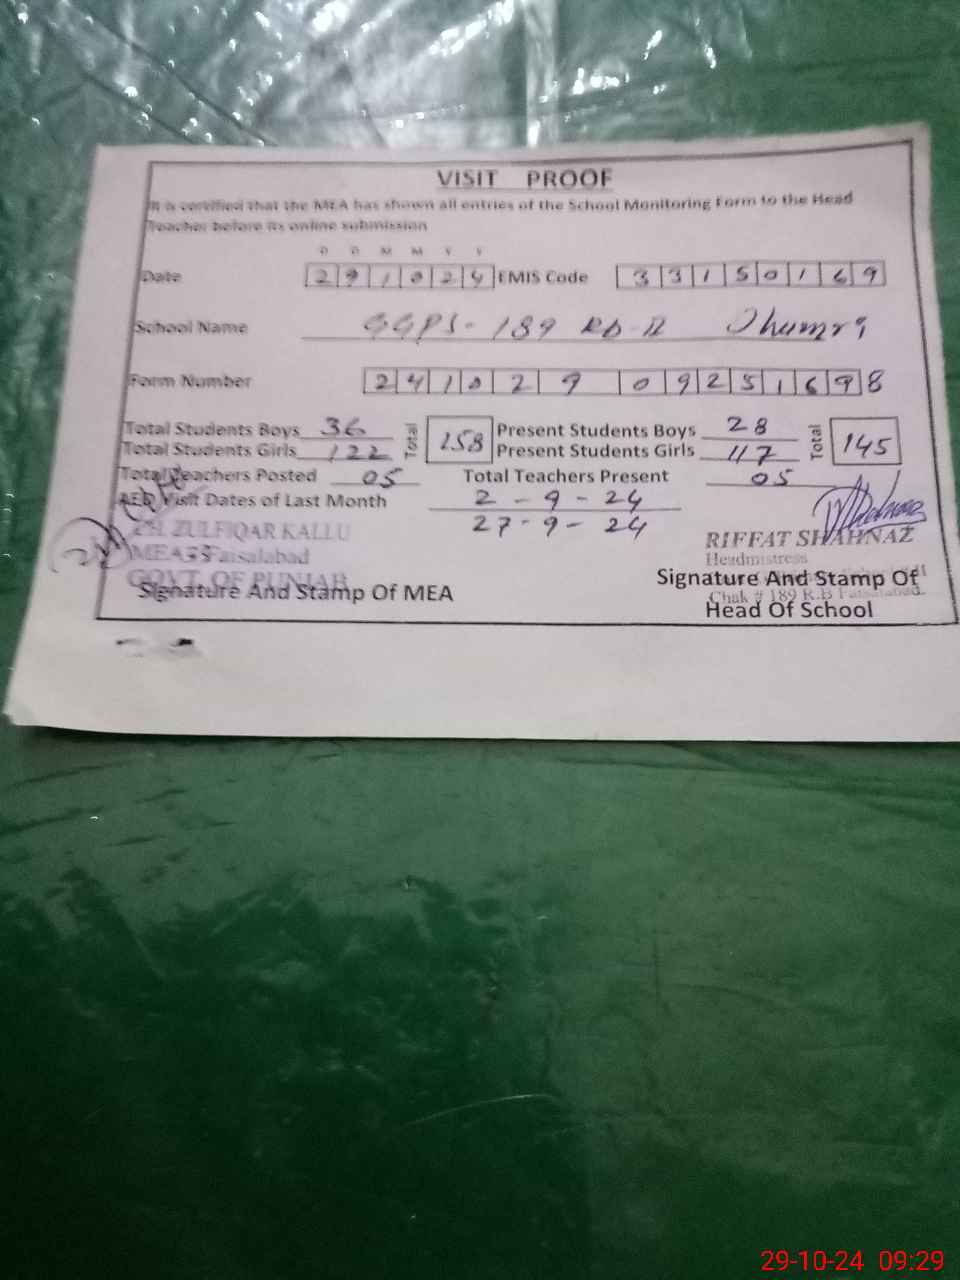 VISIT PROOF
It is certified that the MEA has shown all entries of the School Monitoring Form to the Head
Teacher before its online submission
D D M M Y Y
Date 291024 EMIS Code 33150169
School Name GGPS- 189 RB-II Jhumra
Form Number 24102909251698
Total Students Boys 36 Total 158 Present Students Boys 28 Total 145
Total Students Girls 122 Present Students Girls 117
Total Teachers Posted 05 Total Teachers Present 05
AEO Visit Dates of Last Month 2-9-24
27-9-24
CH. ZULFIQAR KALLU
MEA Faisalabad
GOVT. OF PUNJAB
Signature And Stamp Of MEA
RIFFAT SHAHNAZ
Headmistress
Signature And Stamp Of
Chak # 189 R.B Faisalabad.
Head Of School
29-10-24 09:29